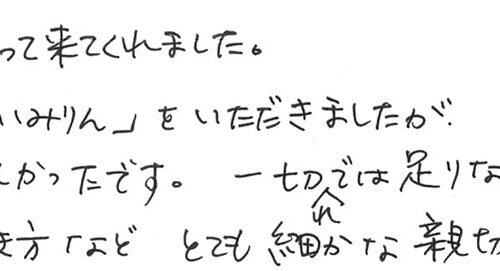 って来てくれました。
いみりん」をいただきましたが
かったです。一切れでは足りな
き方など とても細かな親切